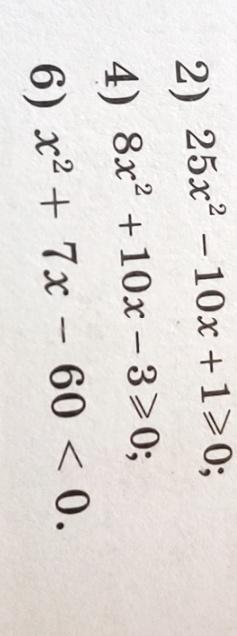 2) 25x² – 10x + 1 ⩾ 0;
4) 8x² + 10x – 3 ⩾ 0;
6) x² + 7x – 60 < 0.